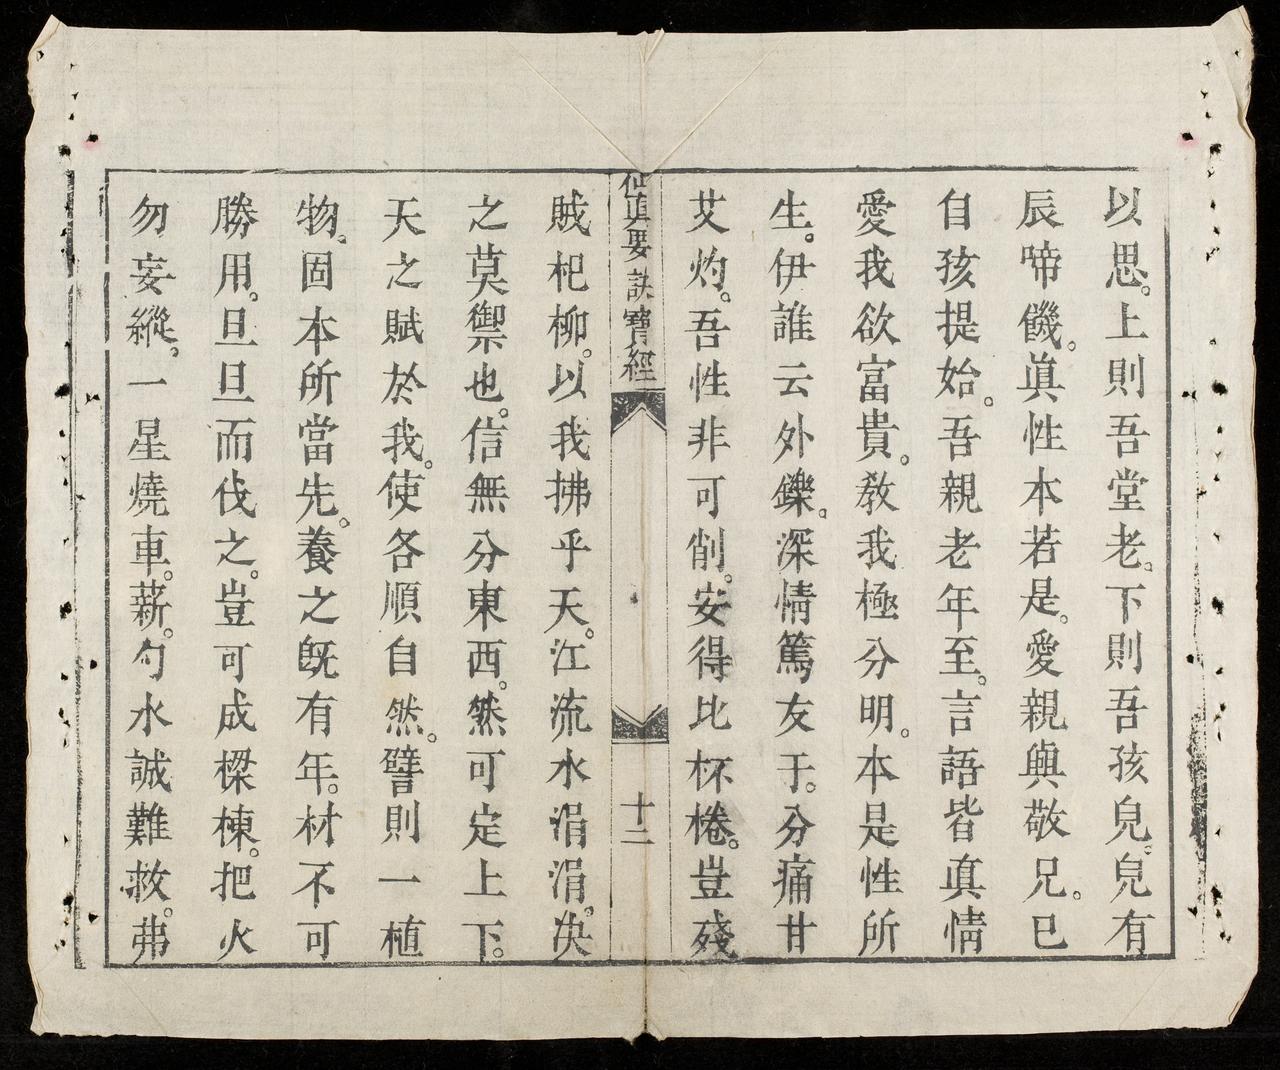 以思。上則吾堂老。下則吾孩兒。兒有
辰啼饑。眞性本若是。愛親與敬兄。已
自孩提始。吾親老年至。言語皆眞情
愛我欲富貴。教我極分明。本是性所
生。伊誰云外鑠。深情篤友于。分痛甘
艾灼。吾性非可削。安得比杯棬。豈殘
仙眞要訣寶經
十二
賊杞柳。以我拂乎天。江流水涓涓。决
之莫禦也。信無分東西。然可定上下。
天之賦於我。使各順自然。譬則一植
物。固本所當先。養之旣有年。材不可
勝用。旦旦而伐之。豈可成樑棟。把火
勿妄縱。一星燒車薪。勺水誠難救。弗